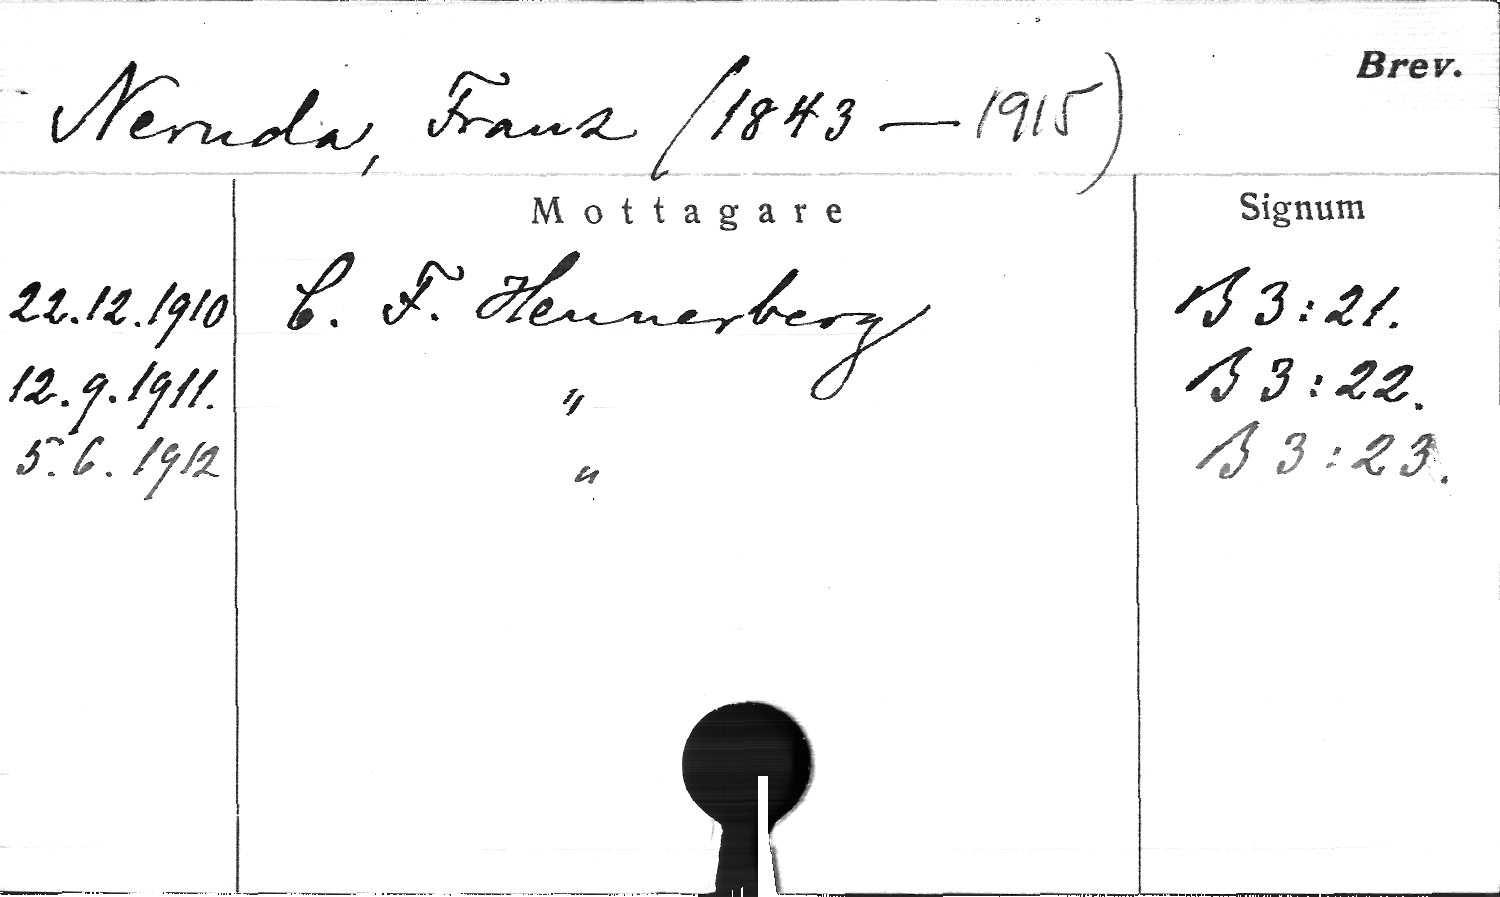 Brev.
Neruda, Franz (1843 — 1915)
Mottagare Signum
22.12.1910 C. F. Hennerberg B 3:21.
12.9.1911. " B 3:22.
5.6.1912 " B 3:23.